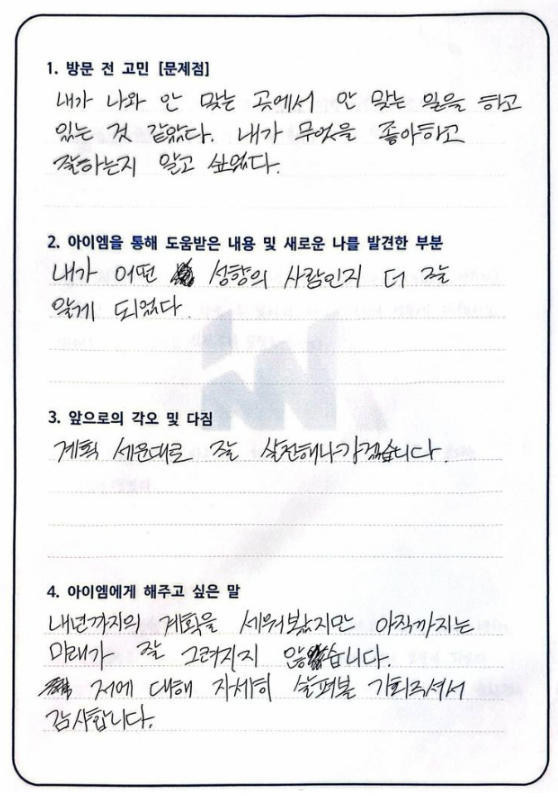 1. 방문 전 고민 [문제점]
내가 나와 안 맞는 곳에서 안 맞는 일을 하고
있는 것 같았다. 내가 무엇을 좋아하고
잘하는지 알고 싶었다.
2. 아이엠을 통해 도움받은 내용 및 새로운 나를 발견한 부분
내가 어떤 성향의 사람인지 더 잘
알게 되었다.
3. 앞으로의 각오 및 다짐
계획 세운대로 잘 실천해나가겠습니다.
4. 아이엠에게 해주고 싶은 말
내년까지의 계획을 세워봤지만 아직까지는
미래가 잘 그려지지 않습니다.
저에 대해 자세히 살펴볼 기회주셔서
감사합니다.